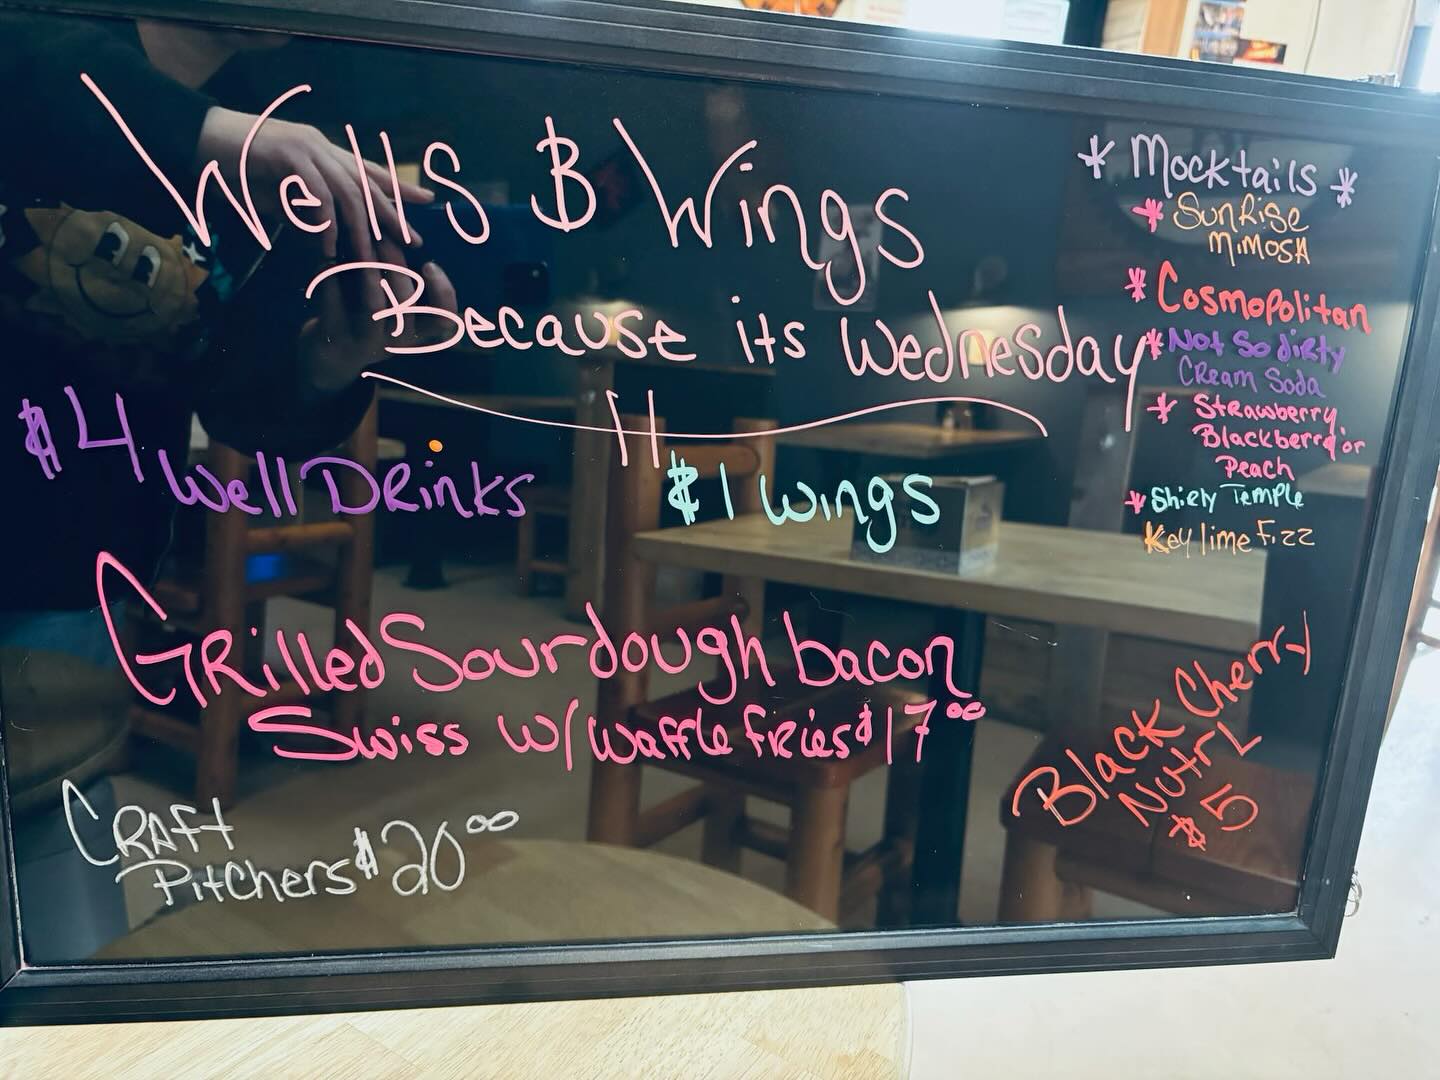 Wells & Wings
Because its Wednesday
$4 Well Drinks
$1 wings
Grilled Sourdough bacon
Swiss w/ waffle fries $17.00
Craft
Pitchers $20.00
* Mocktails *
* Sunrise
Mimosa
* Cosmopolitan
* Not So dirty
Cream Soda
* Strawberry,
Blackberry or
Peach
* Shirly Temple
Key lime Fizz
Black Cherry
Nutrl
$5